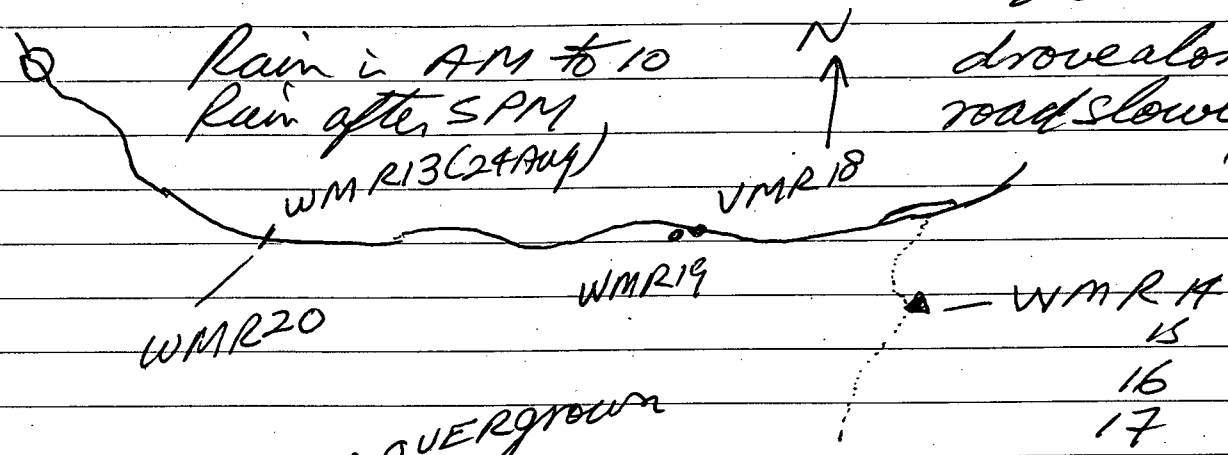 Rain in AM to 10
Rain after 5PM
N
drove alon
road slow
WMR13(24Aug)
VMR18
WMR19
WMR20
WMR 14
15
16
17
OVERgrown